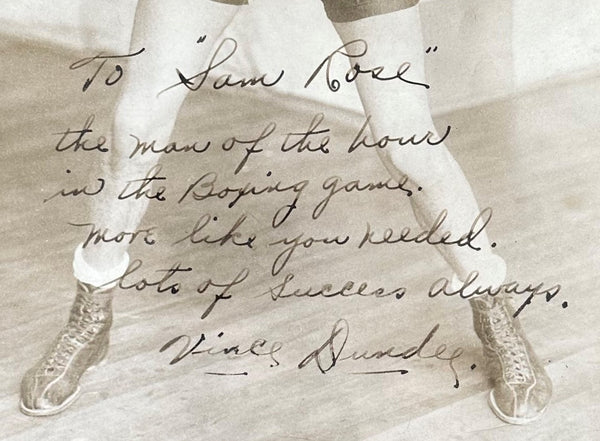 To "Sam Rose"
the man of the hour
in the Boxing game.
more like you needed.
lots of success always.
Vince Dundee.